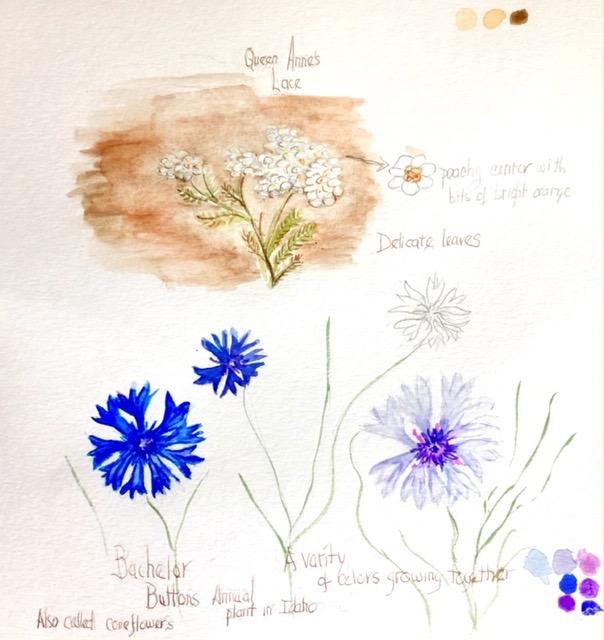 Queen Anne's
Lace
peachy center with
bits of bright orange
Delicate leaves
Bachelor
Buttons Annual
plant in Idaho
Also called coneflowers
A varity
of colors growing together